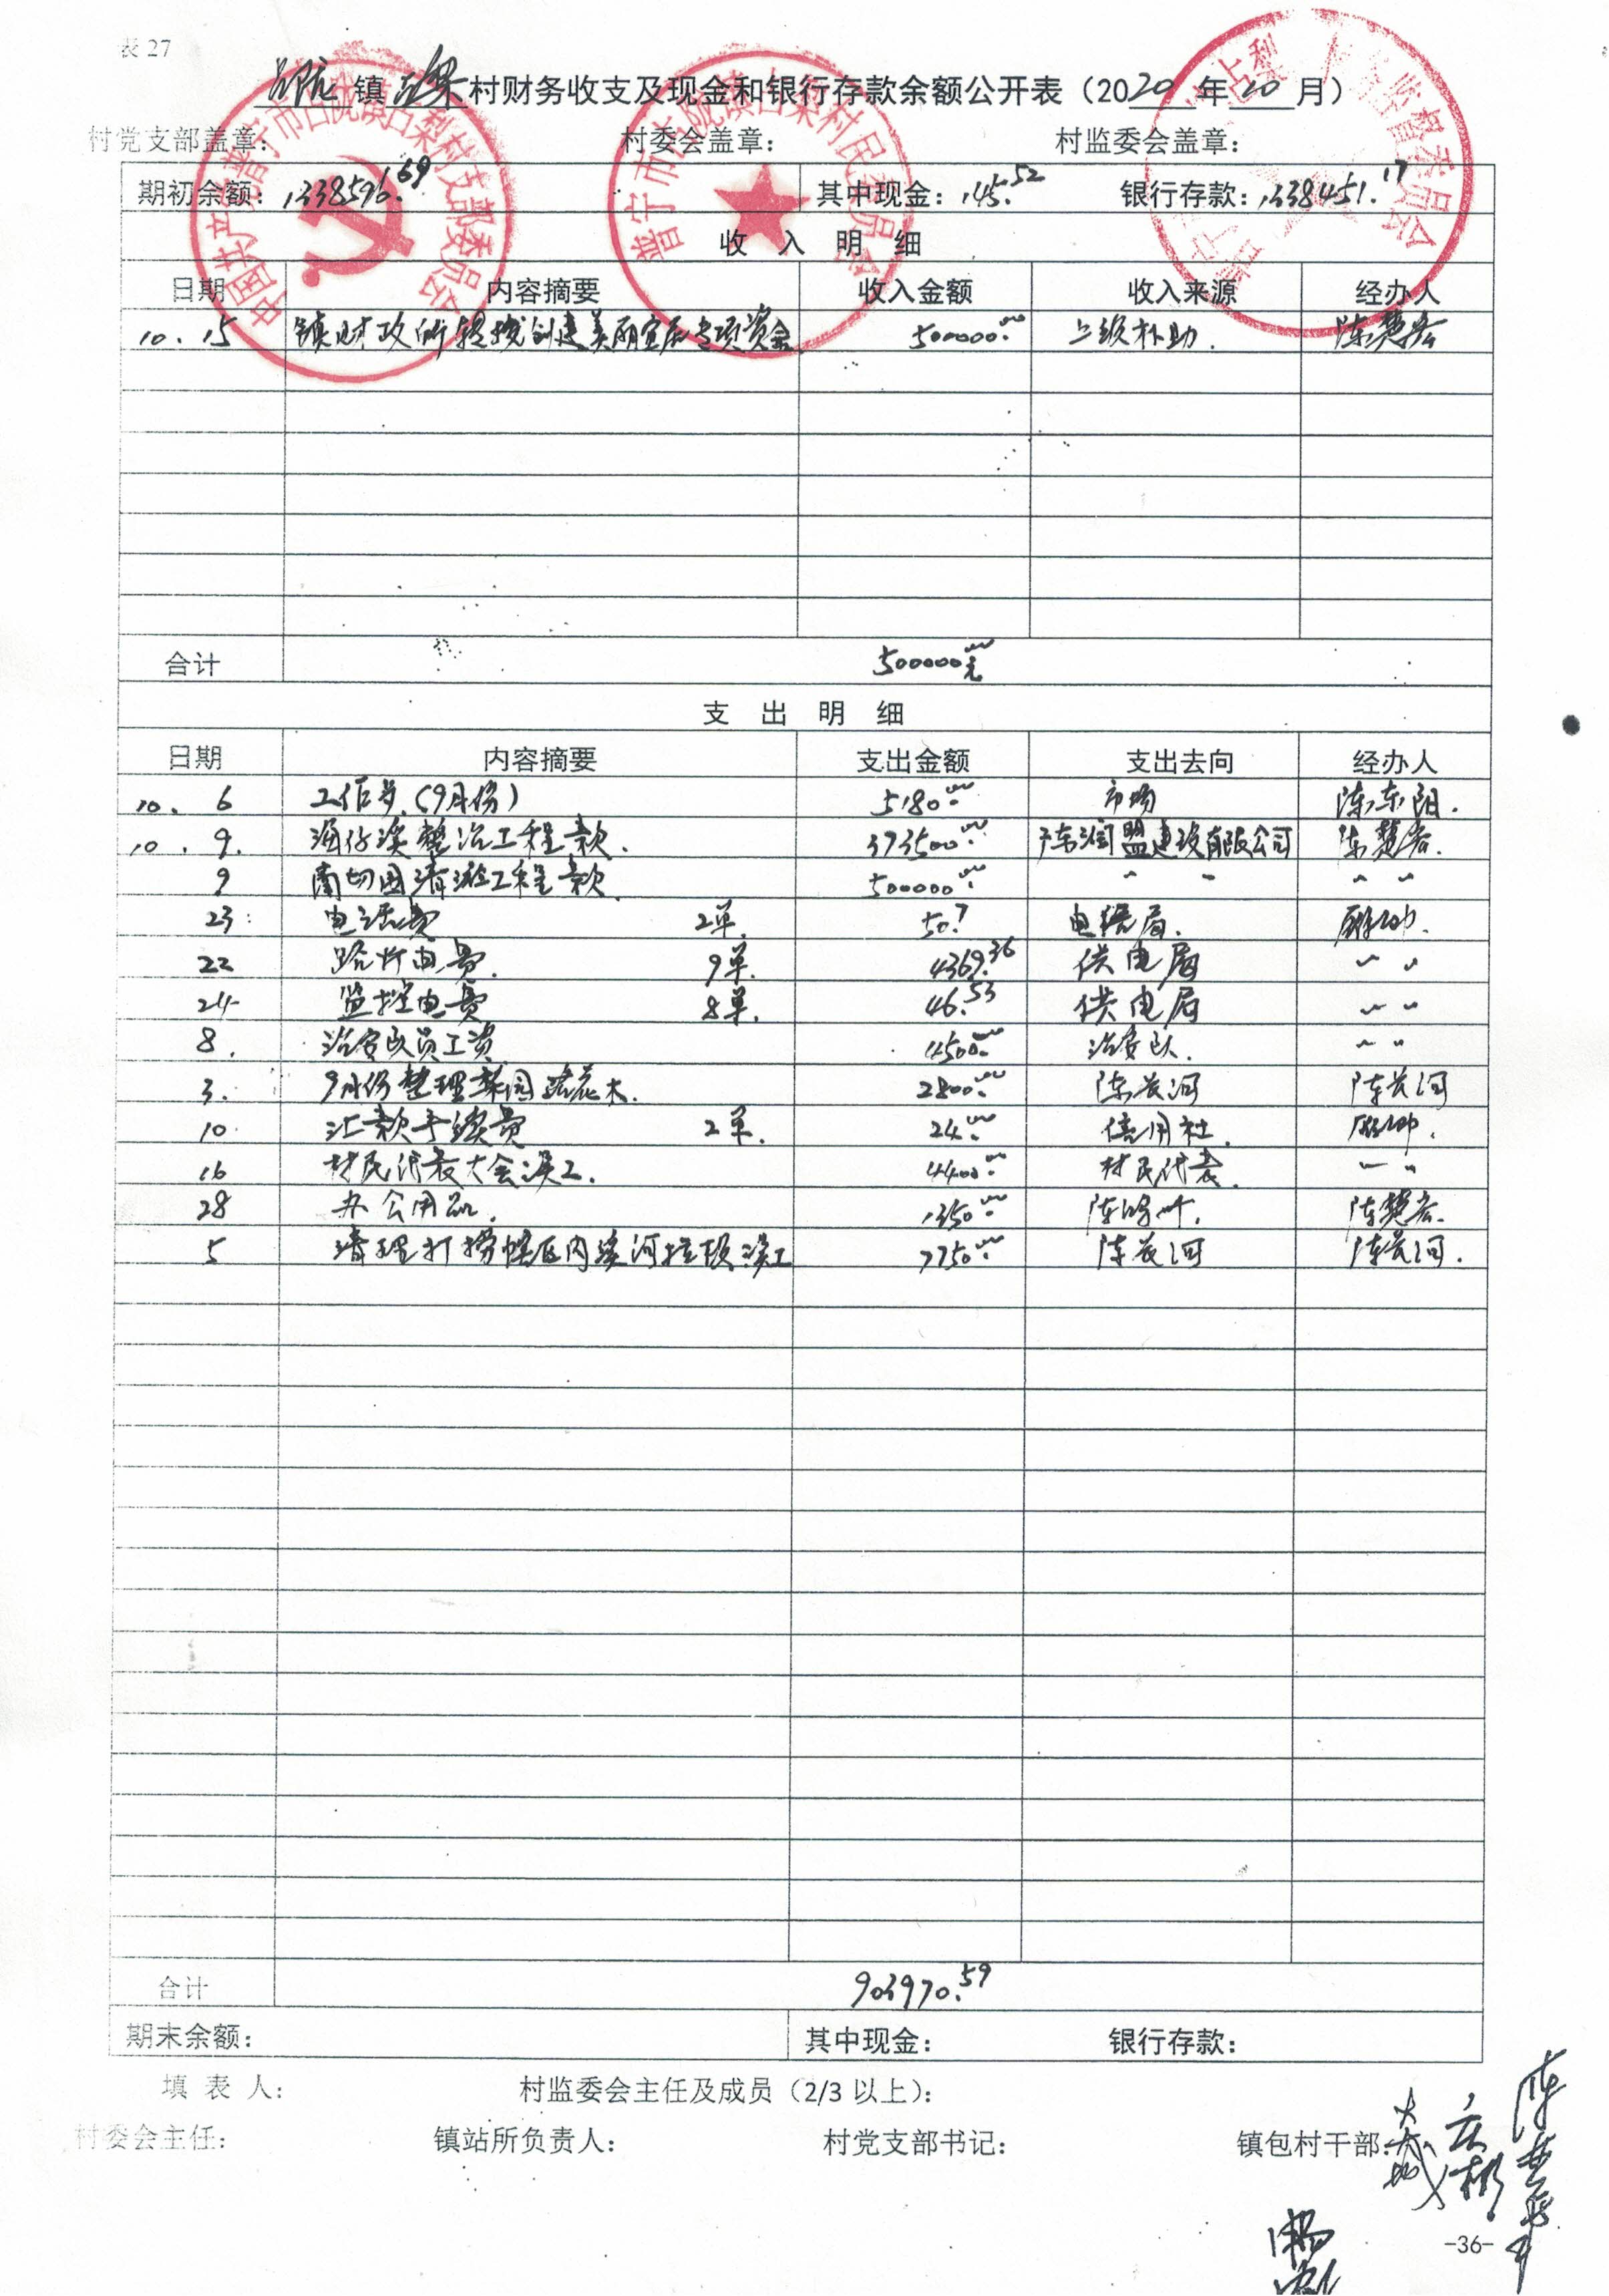 表 27
占陇 镇 占梨 村财务收支及现金和银行存款余额公开表（2020 年 10 月）
村党支部盖章： 村委会盖章： 村监委会盖章：
期初余额：1338596.69 其中现金：145.52 银行存款：1338451.17
收 入 明 细
日期 内容摘要 收入金额 收入来源 经办人
10.15 镇财政所 拨创建美丽宜居专项资金 500000.00 上级补助.
合计 500000.00元
支 出 明 细
日期 内容摘要 支出金额 支出去向 经办人
10. 6 (9月份) 5180.00 市场 陈东阳.
10. 9. 溪整治工程款. 373500.00 广东润盟建设有限公司
9 清淤工程款 500000.00 〃 〃 〃 〃
23 电话费 2单. 50.7 电信局.
22 路灯电费. 9单. 4369.36 供电局 〃 〃
24 监控电费 8单. 46.53 供电局 〃 〃
8. 治安队员工资 4500.00 治安队. 〃 〃
3. 9月份整理 花木. 2800.00 陈 河 陈 河
10 汇款手续费 2单. 24.00 信用社.
16 村民代表大会误工. 4400.00 村民代表. 〃 〃
28 办公用品. 1350.00
5 清理打捞 内溪河垃圾误工 7750.00 陈 河 陈 河.
合计 903970.59
期末余额： 其中现金： 银行存款：
填 表 人： 村监委会主任及成员（2/3 以上）：
村委会主任： 镇站所负责人： 村党支部书记： 镇包村干部：
-36-
中国共产党普宁市占陇镇占梨村支部委员会
普宁市占陇镇占梨村民委员会